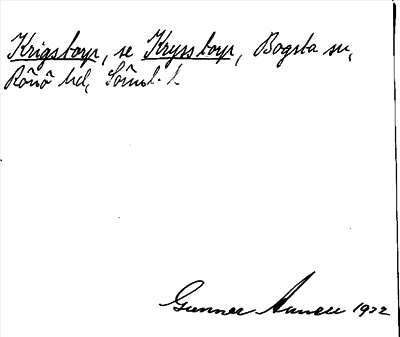 Krigstorp, se Krysstorp, Bogsta sn,
Rönö hd, Söml. l.
Gunnar 1922